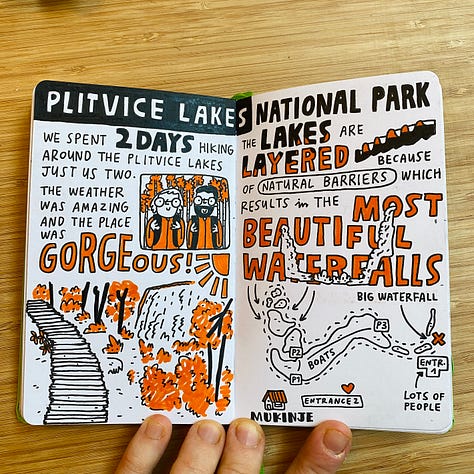 PLITVICE LAKES
WE SPENT 2 DAYS HIKING
AROUND THE PLITVICE LAKES
JUST US TWO.
THE WEATHER
WAS AMAZING
AND THE PLACE
WAS
GORGEOUS!
NATIONAL PARK
THE LAKES ARE
LAYERED
BECAUSE
OF NATURAL BARRIERS WHICH
RESULTS in THE MOST
BEAUTIFUL
WATERFALLS
BIG WATERFALL
P3
P2
BOATS
P1
ENTR.
1
LOTS OF
PEOPLE
ENTRANCE 2
MUKINJE